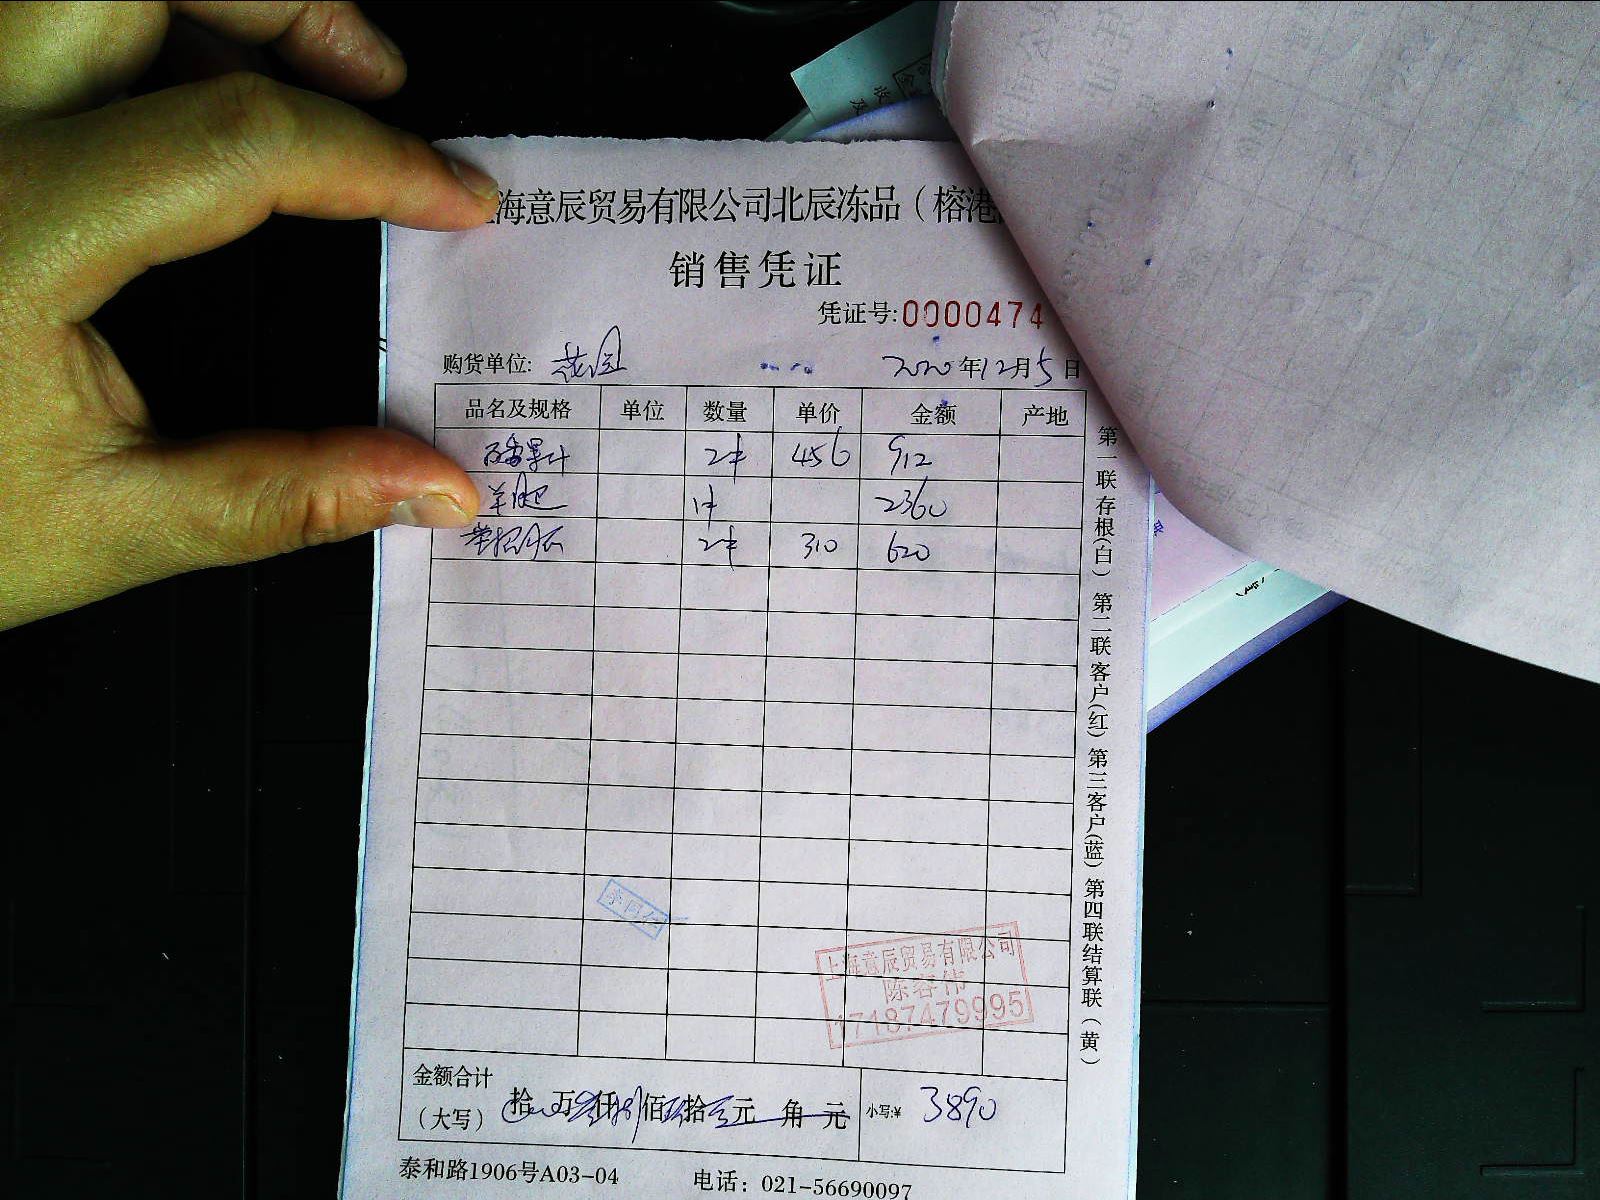 海意辰贸易有限公司北辰冻品（榕港
销售凭证
凭证号:0000474
购货单位: 2020年12月5日
品名及规格 单位 数量 单价 金额 产地
2件 456 912
羊 1件 2360
2件 310 620
第一联存根(白) 第二联客户(红) 第三客户(蓝) 第四联结算联(黄)
上海意辰贸易有限公司
陈容伟
17187479995
金额合计
（大写） 拾 万 仟 佰 拾 元 角 元 小写:¥ 3890
泰和路1906号A03-04 电话：021-56690097